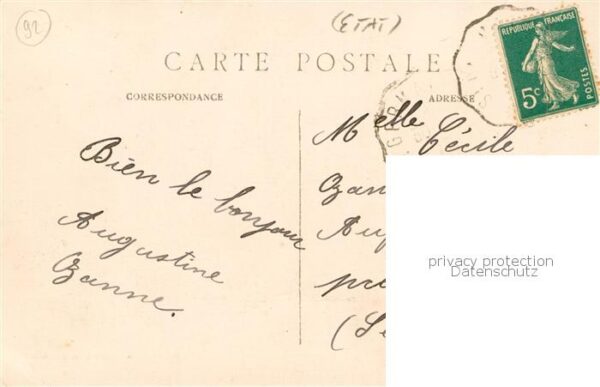 92
(ETAT)
CARTE POSTALE
CORRESPONDANCE
ADRESSE
REPUBLIQUE FRANÇAISE
POSTES
5c
Bien le bonjour
Augustine
Zanne.
Melle Cécile
privacy protection
Datenschutz